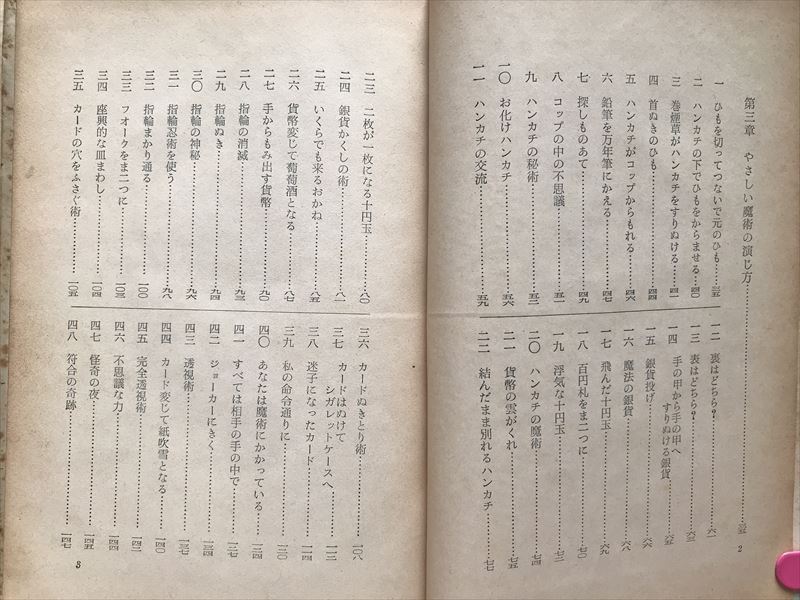 第三章　やさしい魔術の演じ方……三五
一　ひもを切ってつないで元のひも……三五
二　ハンカチの下でひもをからませる……四〇
三　巻煙草がハンカチをすりぬける……四一
四　首ぬきのひも……四四
五　ハンカチがコップからもれる……四六
六　鉛筆を万年筆にかえる……四七
七　探しものあて……四九
八　コップの中の不思議……五一
九　ハンカチの秘術……五二
一〇　お化けハンカチ……五六
一一　ハンカチの交流……五九
一二　裏はどちら?……六一
一三　表はどちら?……六三
一四　手の甲から手の甲へ
すりぬける銀貨……六五
一五　銀貨投げ……六六
一六　魔法の銀貨……六八
一七　飛んだ十円玉……六九
一八　百円札をま二つに……七〇
一九　浮気な十円玉……七二
二〇　ハンカチの魔術……七四
二一　貨幣の雲がくれ……七五
二二　結んだまま別れるハンカチ……七七
2
二三　二枚が一枚になる十円玉……八〇
二四　銀貨かくしの術……八一
二五　いくらでも来るおかね……八五
二六　貨幣変じて葡萄酒となる……八七
二七　手からもみ出す貨幣……九〇
二八　指輪の消滅……九三
二九　指輪ぬき……九四
三〇　指輪の神秘……九六
三一　指輪忍術を使う……九八
三二　指輪まかり通る……一〇〇
三三　フオークをま二つに……一〇三
三四　座興的な皿まわし……一〇四
三五　カードの穴をふさぐ術……一〇五
三六　カードぬきとり術……一〇八
三七　カードはぬけて
シガレットケースへ……一一三
三八　迷子になったカード……一一四
三九　私の命令通りに……一三〇
四〇　あなたは魔術にかかっている……一三四
四一　すべては相手の手の中で……一二七
四二　ジョーカーにきく……一三四
四三　透視術……一三七
四四　カード変じて紙吹雪となる……一四〇
四五　完全透視術……一四二
四六　不思議な力……一四四
四七　怪奇の夜……一四五
四八　符合の奇跡……一四七
3